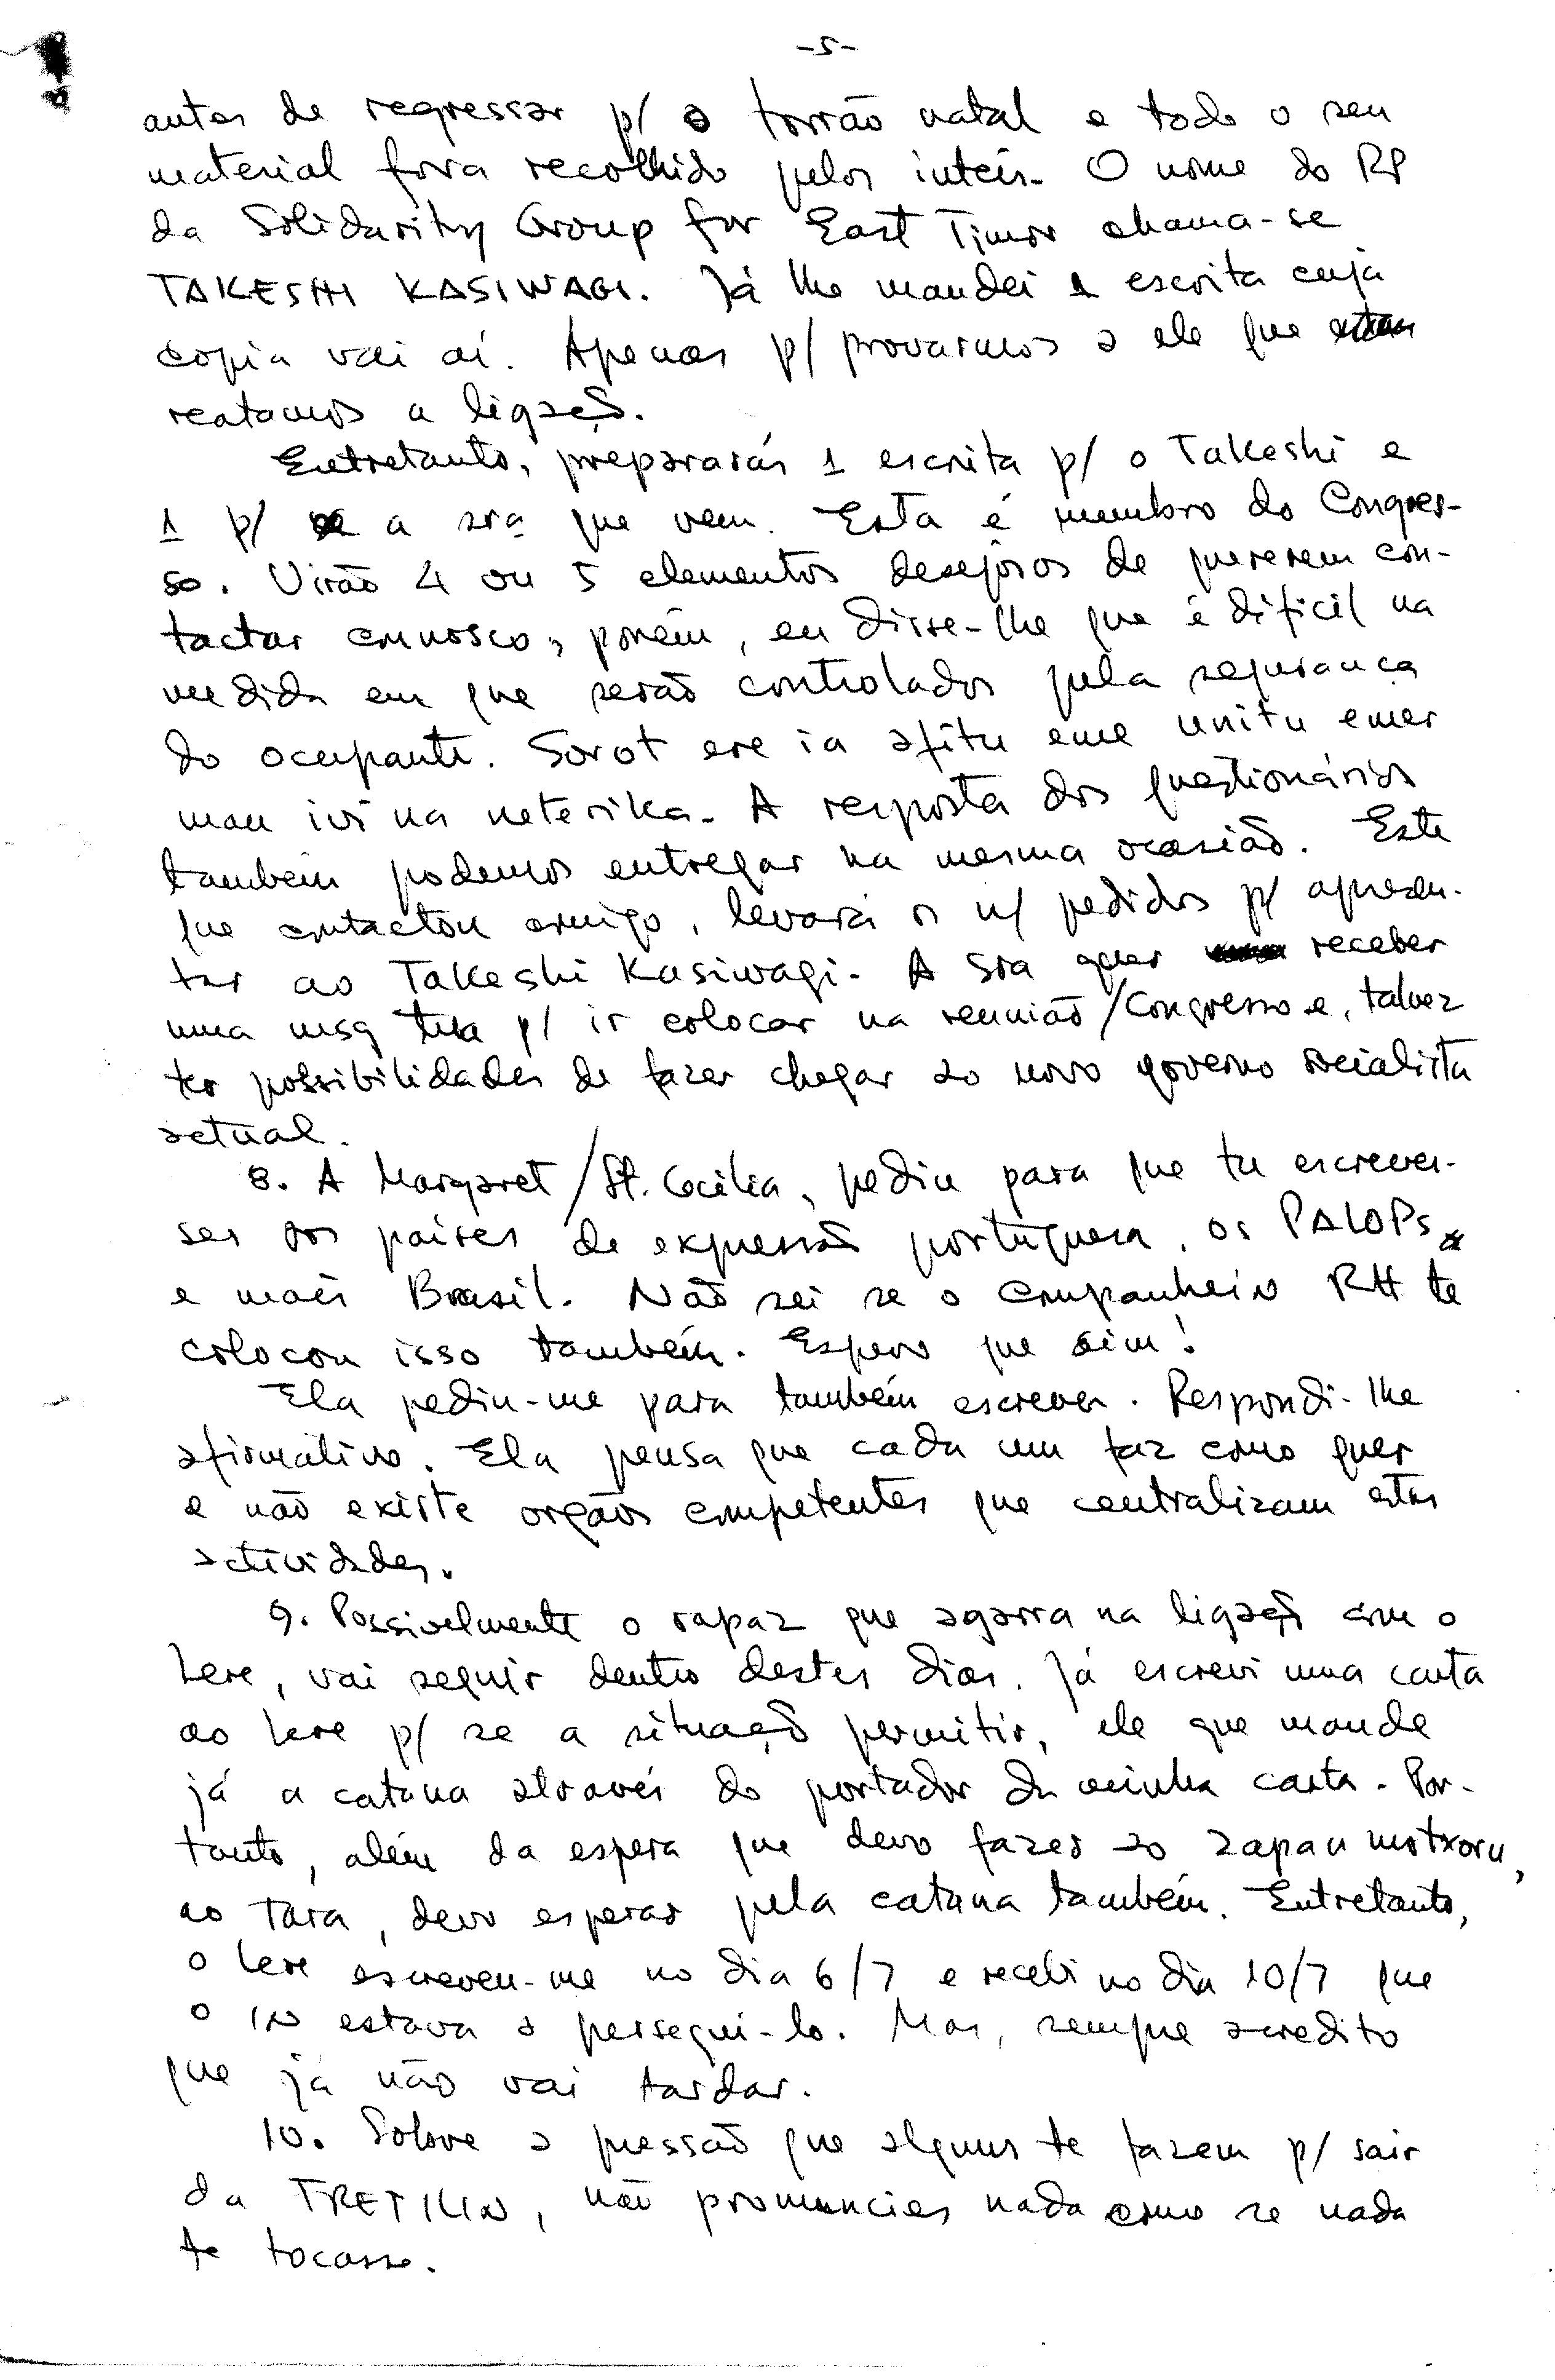 -5-
antes de regressar p/ o torrão natal e todo o seu
material fora recolhido pelos intéis. O nome do RP
da Solidarity Group for East Timor chama-se
TAKESHI KASIWAGI. Já lhe mandei 1 escrita cuja
copia vai aí. Apenas p/ provarmos a ele que
reatamos a ligação.
Entretanto, prepararás 1 escrita p/ o Takeshi e
1 p/ a sra que vem. Esta é membro do Congres-
so. Virão 4 ou 5 elementos desejosos de quererem con-
tactar connosco, porém, eu disse-lhe que é dificil na
medida em que serão controlados pela segurança
do ocupante. Sorot ere ia afitu eme unitu emer
mau ivi na neterika. A resposta dos questionários
também podemos entregar na mesma ocasião. Este
que contactou comigo, levará os n/ pedidos p/ apresen-
tar ao Takeshi Kasiwagi. A Sra quer receber
uma msg tua p/ ir colocar na reunião/Congresso e, talvez
ter possibilidades de fazer chegar ao novo governo socialista
actual.
8. A Margaret/St. Cecilia, pediu para que tu escreves-
ses aos países de expressão portuguesa, os PALOPs
e mais Brasil. Não sei se o companheiro RH te
colocou isso também. Espero que sim!
Ela pediu-me para também escrever. Respondi-lhe
afirmativo. Ela pensa que cada um faz como quer
e não existe orgãos competentes que centralizam estas
actividades.
9. Possivelmente o rapaz que agarra na ligação com o
Lere, vai seguir dentro destes dias. Já escrevi uma carta
ao Lere p/ se a situação permitir, ele que mande
já a catana através do portador da minha carta. Por-
tanto, além da espera que devo fazer ao zapan motxoru,
ao Tara, devo esperar pela catana também. Entretanto,
o Lere escreveu-me no dia 6/7 e recebi no dia 10/7 que
o IN estava a persegui-lo. Mas, sempre acredito
que já não vai tardar.
10. Sobre a pressão que alguns te fazem p/ sair
da FRETILIN, não pronuncies nada como se nada
te tocasse.